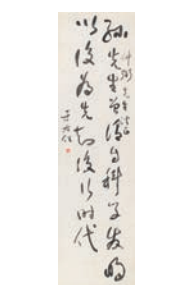 孫先生曾謂自科學發明
以後為先知後行時代
于右任